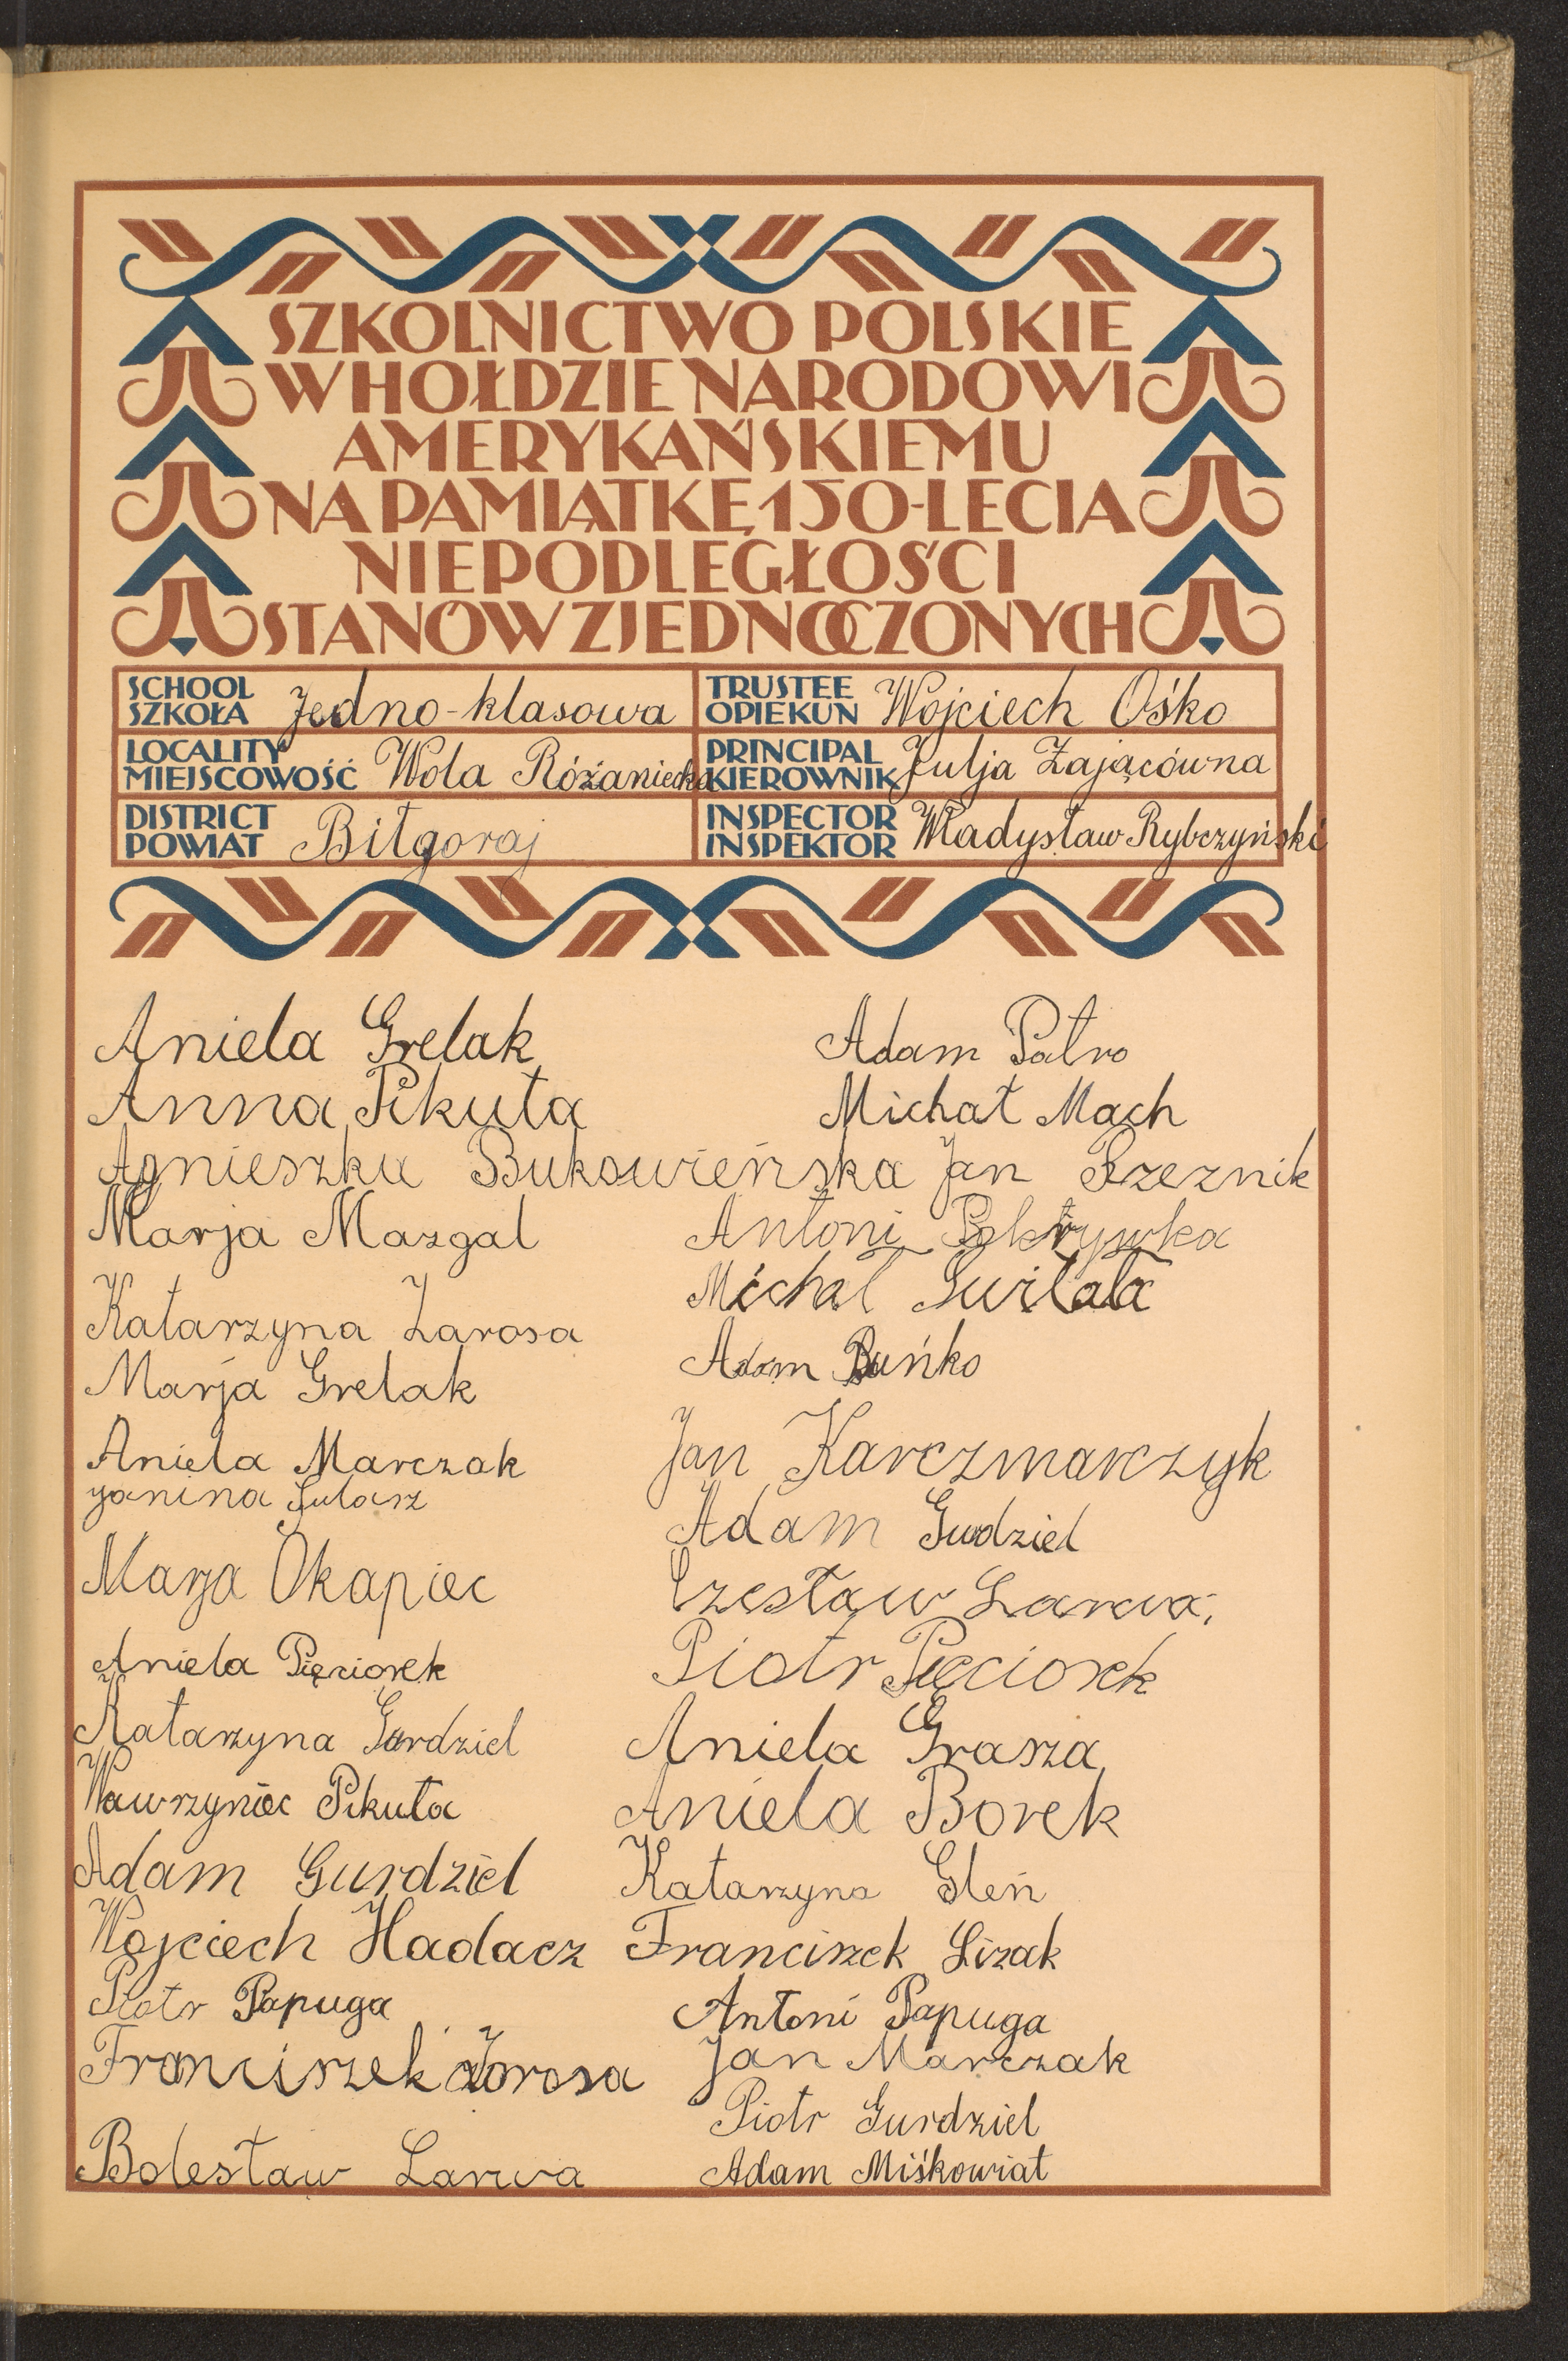 SZKOLNICTWO POLSKIE
W HOŁDZIE NARODOWI
AMERYKAŃSKIEMU
NA PAMIĄTKĘ 150-LECIA
NIEPODLEGŁOŚCI
STANÓW ZJEDNOCZONYCH
SCHOOL
SZKOŁA Jedno-klasowa
TRUSTEE
OPIEKUN Wojciech Ośko
LOCALITY
MIEJSCOWOŚĆ Wola Różaniecka
PRINCIPAL
KIEROWNIK Julja Zającówna
DISTRICT
POWIAT Biłgoraj
INSPECTOR
INSPEKTOR Władysław Rybczyński
Aniela Grelak
Anna Pikuła
Agnieszka Bukowieńska
Marja Mazgal
Katarzyna Zarosa
Marja Grelak
Aniela Marczak
Janina
Marja Okapiec
Aniela Pięciorek
Katarzyna Gurdziel
Wawrzyniec Pikuła
Adam Gurdziel
Wojciech Hadacz
Piotr Papuga
Franciszek Zarosa
Bolesław Larwa
Adam Patro
Michał Mach
Jan Rzeznik
Antoni Pokrywka
Michał
Adam Buńko
Jan Karczmarczyk
Adam Gurdziel
Czesław Larwa.
Piotr Pięciorek
Aniela Grasza
Aniela Borek
Katarzyna Gleń
Franciszek Lizak
Antoni Papuga
Jan Marczak
Piotr Gurdziel
Adam Miśkowiat